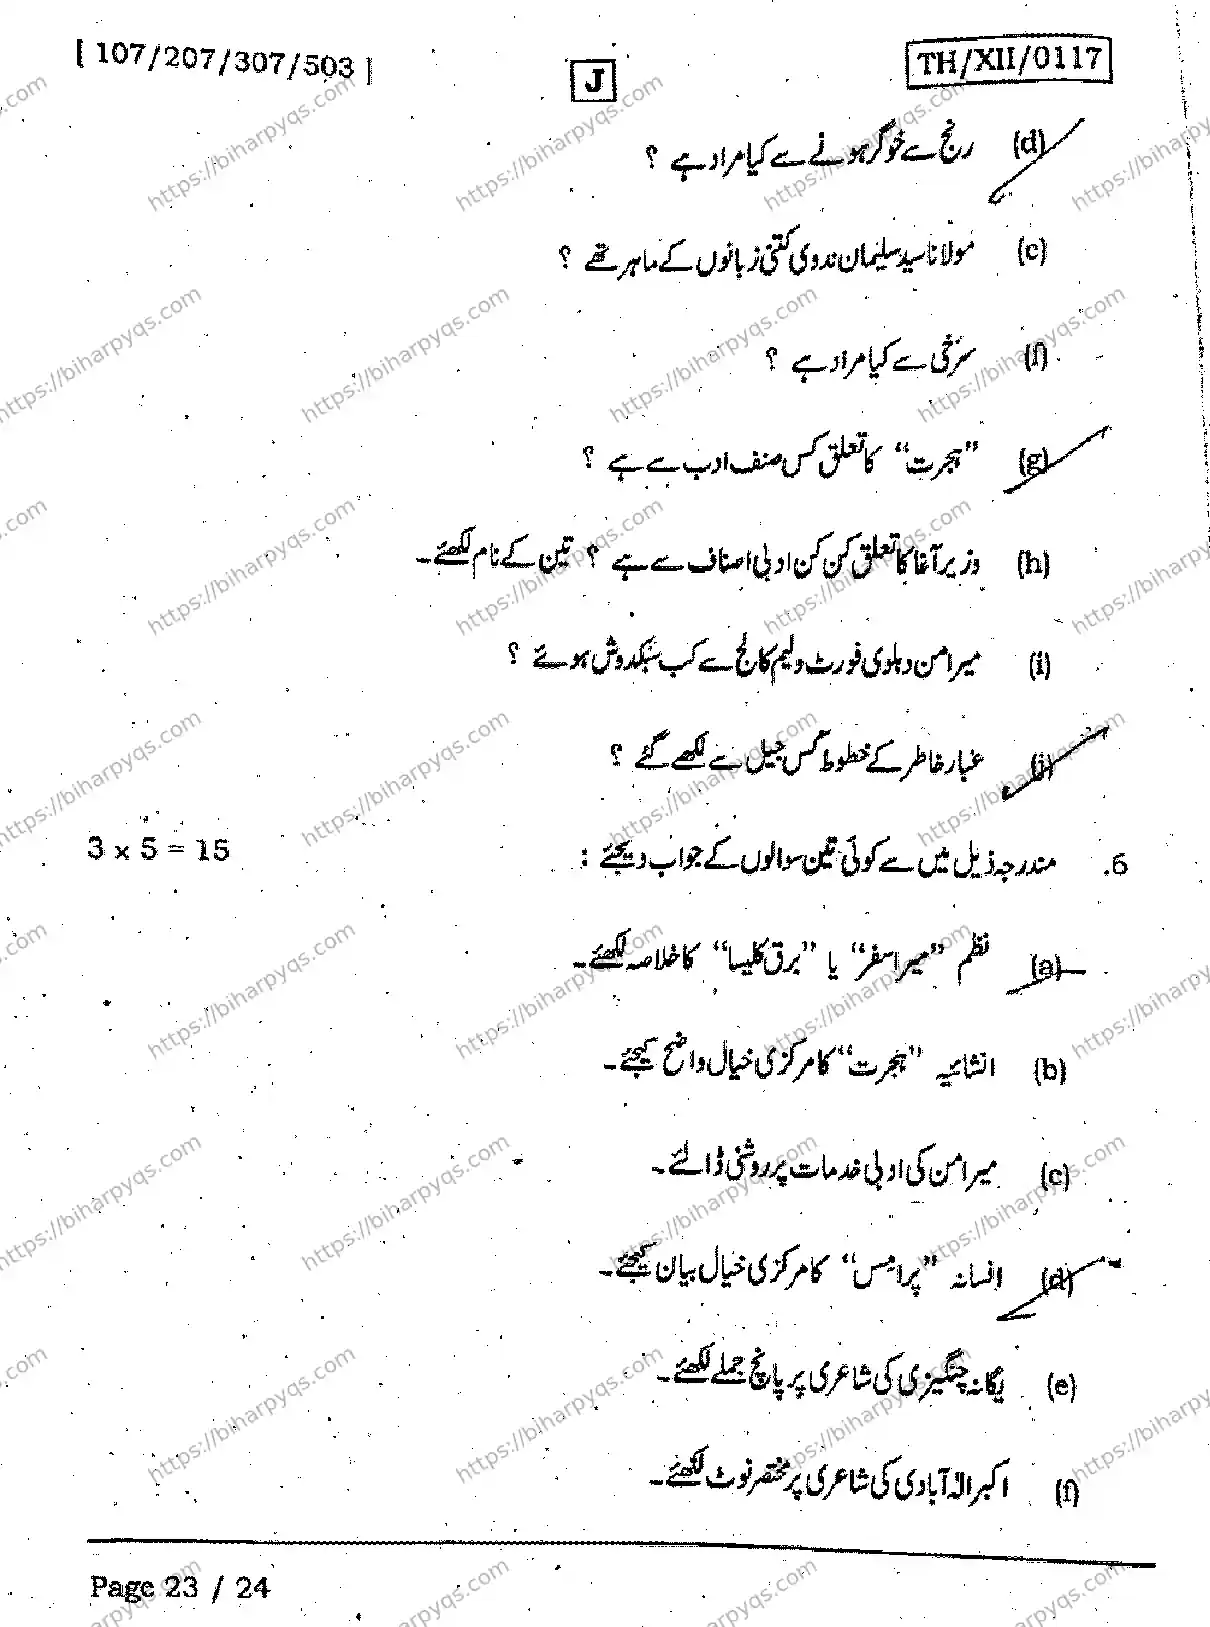 [ 107/207/307/503 ]
J
TH/XII/0117
(d) رنج سے خوگر ہونے سے کیا مراد ہے ؟
(e) مولانا سید سلیمان ندوی کتنی زبانوں کے ماہر تھے ؟
(f) سرخی سے کیا مراد ہے ؟
(g) ”ہجرت“ کا تعلق کس صنف ادب سے ہے ؟
(h) وزیر آغا کا تعلق کن کن ادبی اصناف سے ہے ؟ تین کے نام لکھئے۔
(i) میر امن دہلوی فورٹ ولیم کالج سے کب سبکدوش ہوئے ؟
(j) غبار خاطر کے خطوط کس جیل سے لکھے گئے ؟
6. مندرجہ ذیل میں سے کوئی تین سوالوں کے جواب دیجئے : 3 x 5 = 15
(a) نظم ”میرا سفر“ یا ”برق کلیسا“ کا خلاصہ لکھئے۔
(b) انشائیہ ”ہجرت“ کا مرکزی خیال واضح کیجئے۔
(c) میر امن کی ادبی خدمات پر روشنی ڈالئے۔
(d) افسانہ ”پرامس“ کا مرکزی خیال بیان کیجئے۔
(e) یگانہ چنگیزی کی شاعری پر پانچ جملے لکھئے۔
(f) اکبر الہ آبادی کی شاعری پر مختصر نوٹ لکھئے۔
Page 23 / 24
https://biharpyqs.com